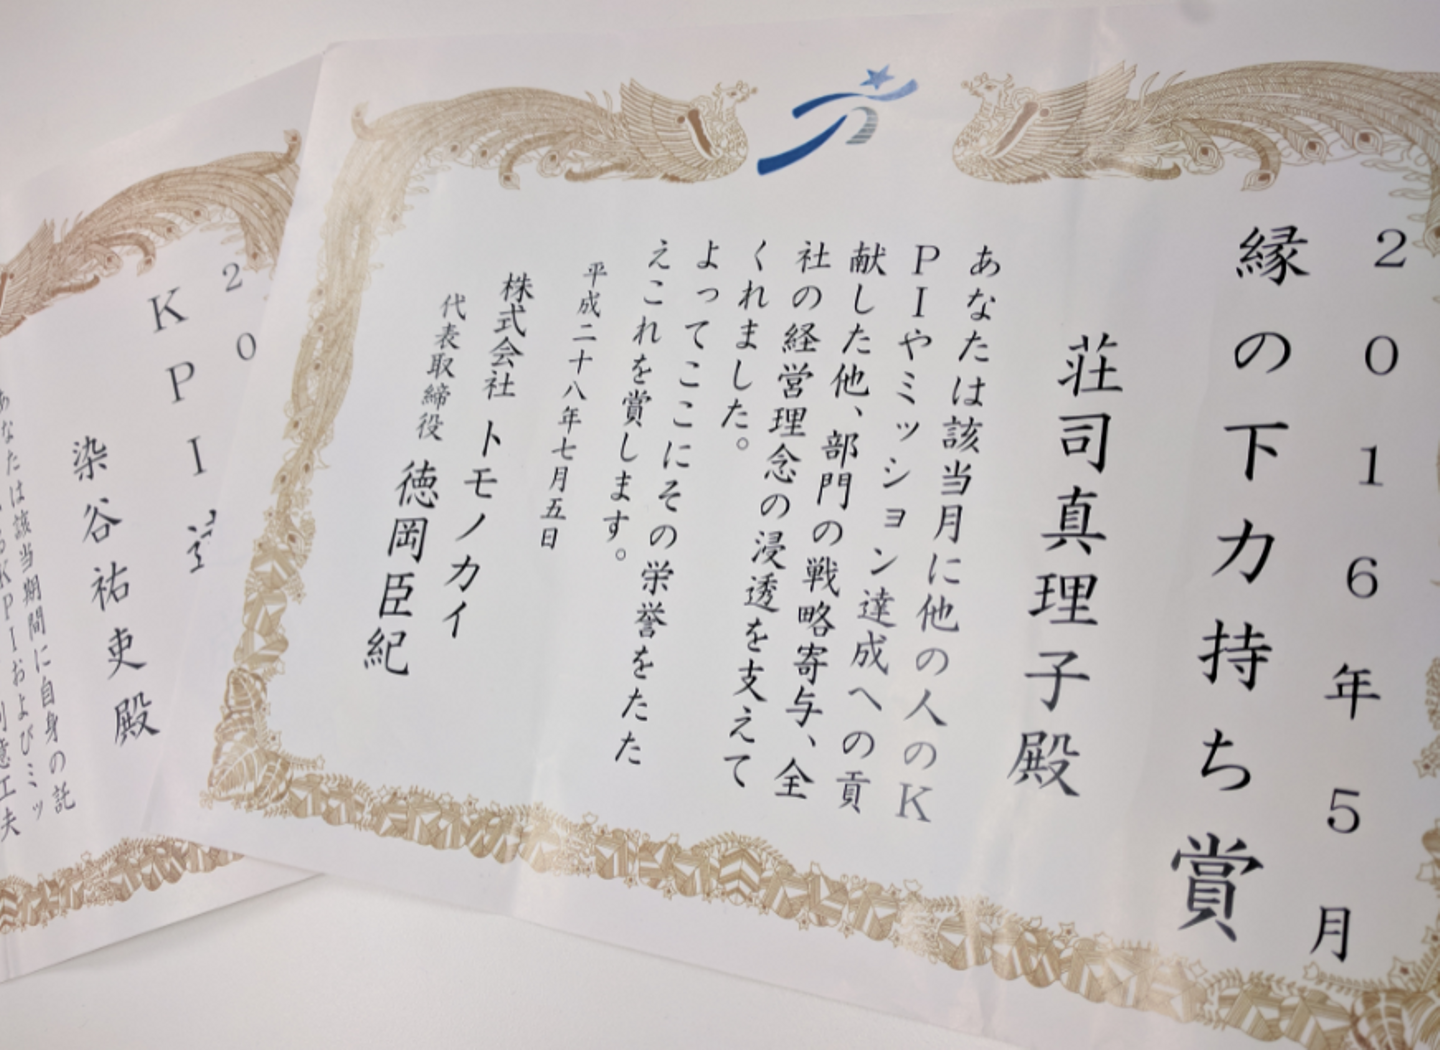 2016年5月
縁の下力持ち賞
荘司真理子殿
あなたは該当月に他の人のK
PIやミッション達成への貢
献した他、部門の戦略寄与、全
社の経営理念の浸透を支えて
くれました。
よってここにその栄誉をたた
えこれを賞します。
平成二十八年七月五日
株式会社 トモノカイ
代表取締役 徳岡臣紀
20
KPI
染谷祐吏殿
あなたは該当期間に自身の託
KPIおよびミッ
創意工夫